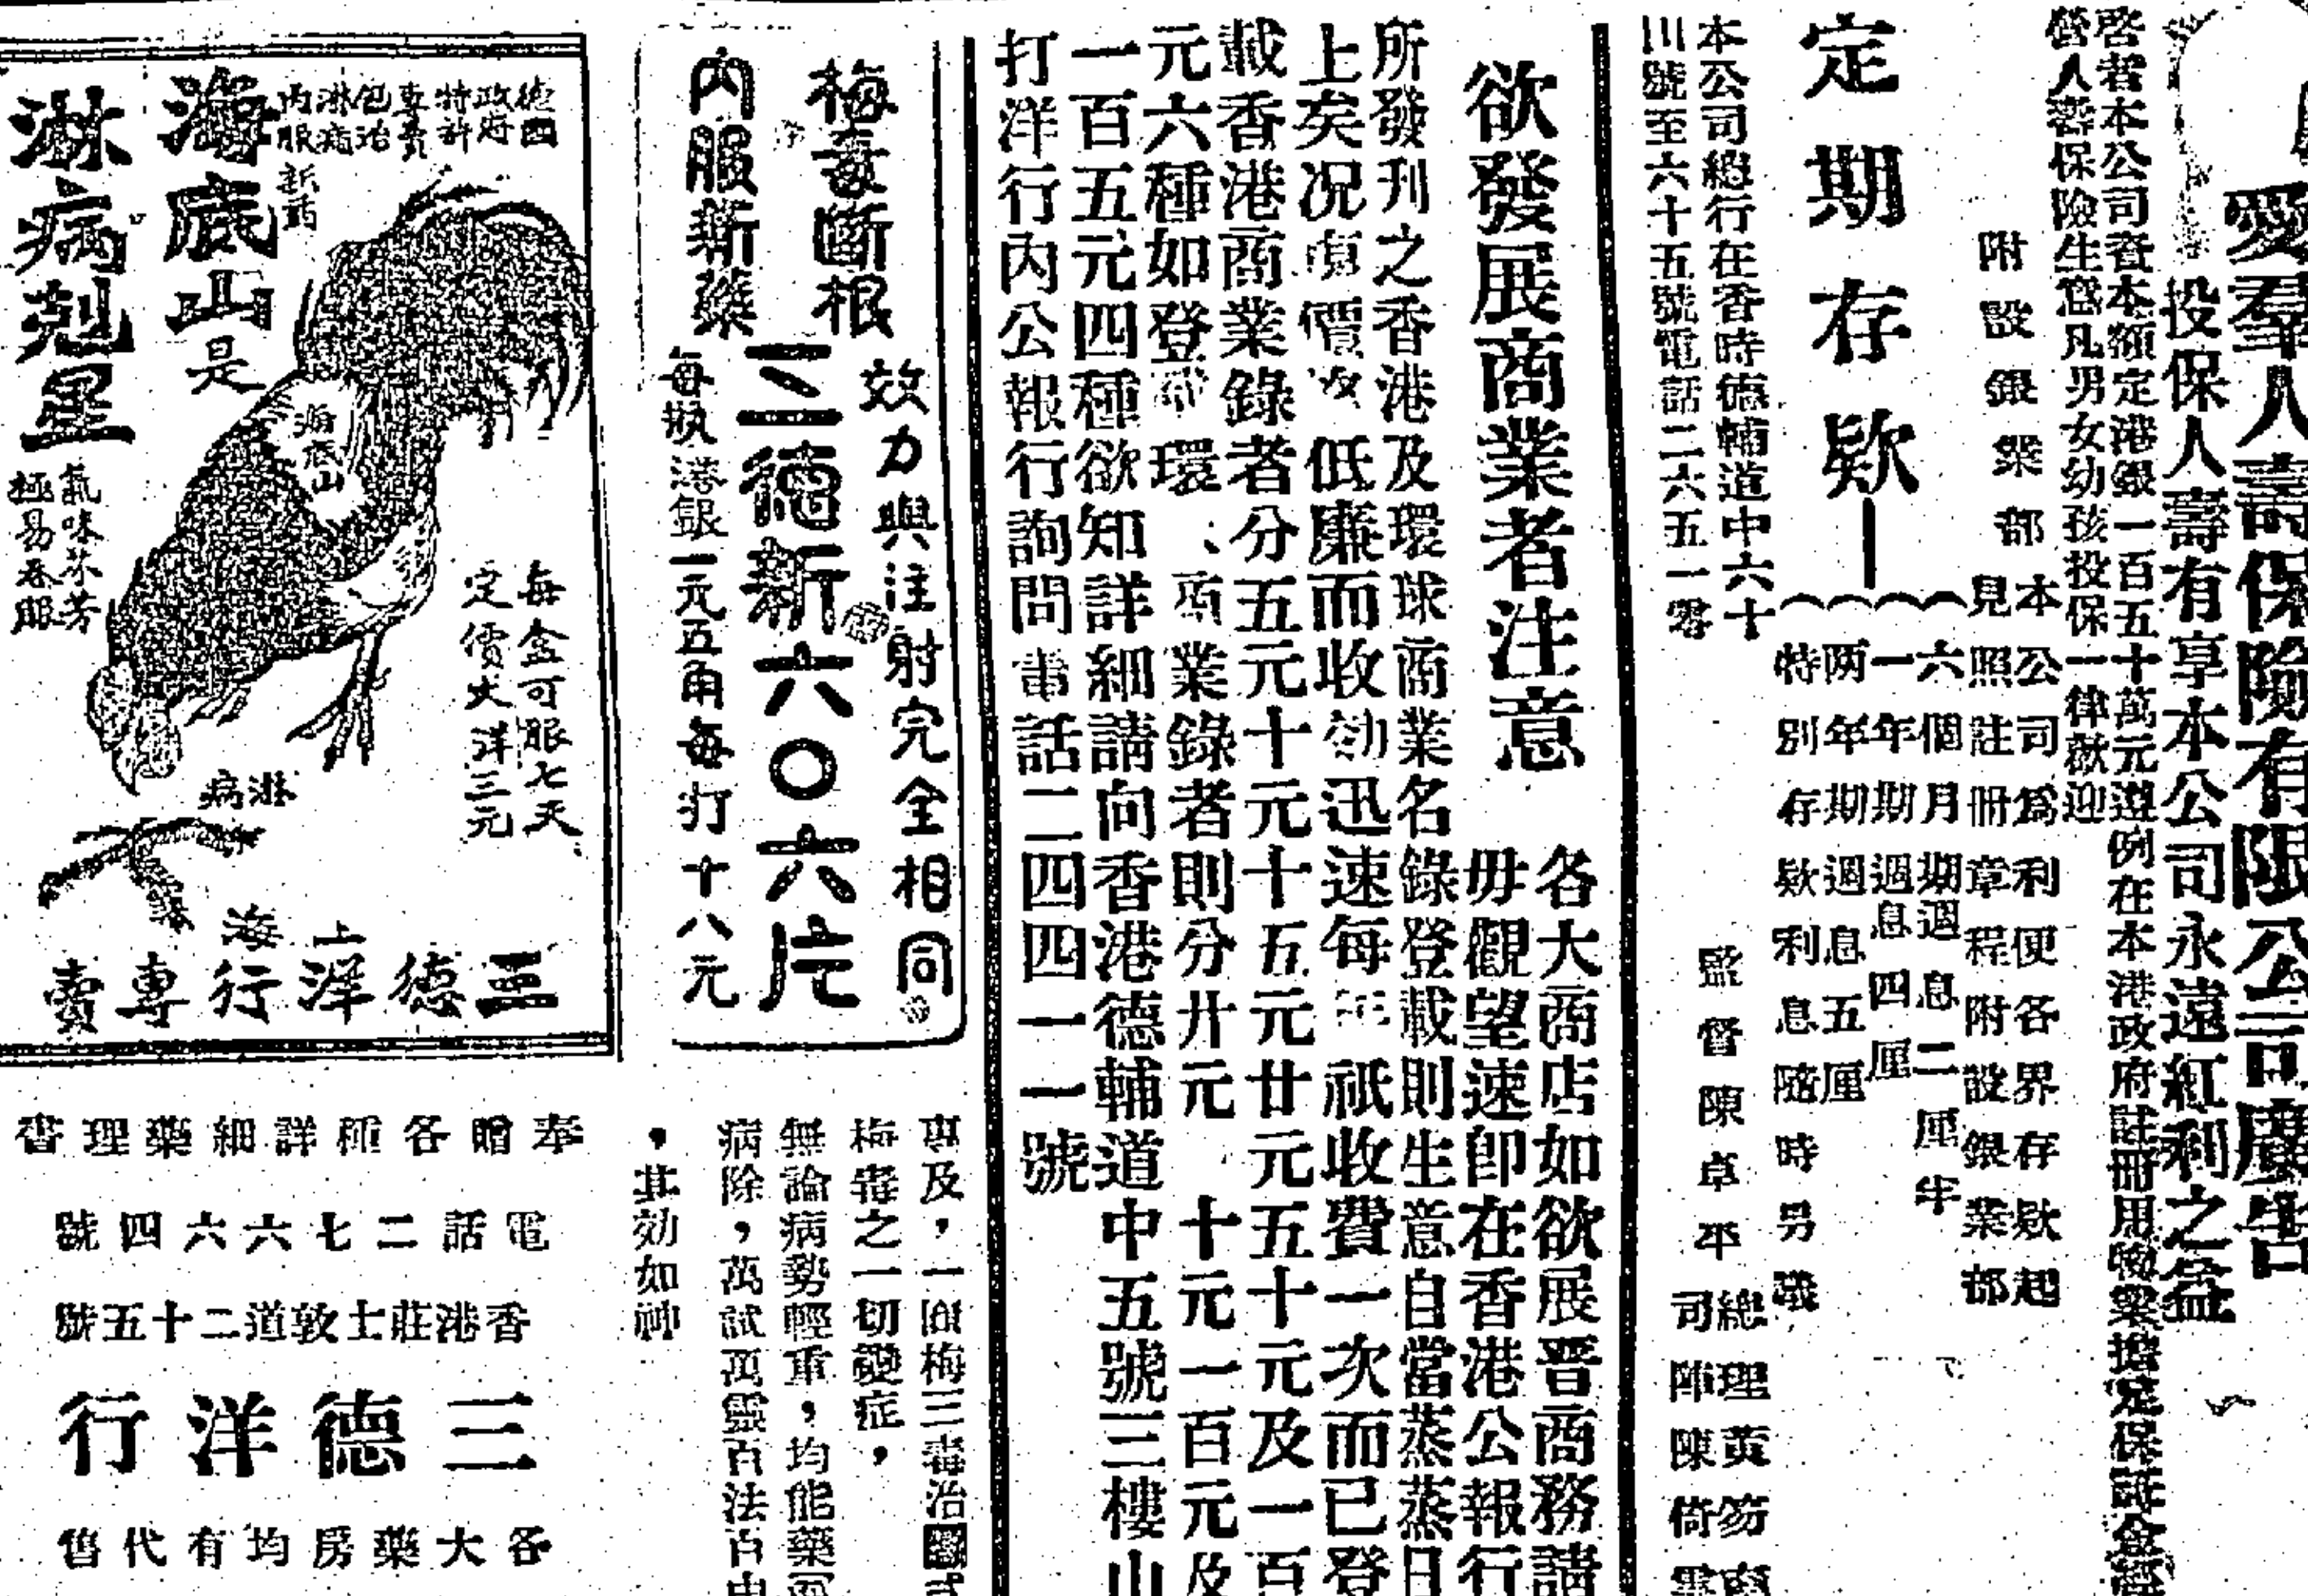 愛羣人壽保險有限公司廣告
投保人壽有享本公司永遠紅利之益
啓者本公司資本額定港銀一百五十萬元遵例在本港政府註冊用
營人壽保險生意凡男女幼孩投保一律歡迎
附設銀業部
本公司爲利便各界存欵起
見照註冊章程附設銀業部
定期存欵
六個月期週息二厘半
一年期週息四厘
两年期週息五厘
特別存欵利息隨時另議
本公司總行在香港德輔道中六十
號至六十五號電話二六五一零
監督陳卓平
總理黃
司
欲發展商業者注意
各大商店如欲展晋商務請
毋觀望速卽在香港公報行
所發刊之香港及環球商業名錄登載則生意自當蒸蒸日
上矣况 價 低廉而收効迅速每年祇收費一次而已登
載香港商業錄者分五元十元十五元廿元五十元及一百
元六種如登 環 業錄者則分廿元 十元一百元及
一百五元四種欲知詳細請向香港德輔道中五號三樓山
打洋行內公報行詢問電話二四四一一號
梅毒斷根
內服新藥
效力與注射完全相同
三德新六〇六片
每瓶港銀一元五角每打十八元
及，一 梅三毒治
梅毒之一切變症，
無論病勢輕重，均能藥
病除，萬試萬靈百法百中
，其効如神
德國
政府
特許
專賣
包治
淋病
內服
新药
海底山是
淋病剋星
氣味芬芳
極易吞服
海底山
每盒可服七天
定價大洋三元
淋病
上海
三德洋行專賣
奉贈各種詳細藥理書
電話二七六六四號
香港莊士敦道二十五號
三德洋行
各大藥房均有代售